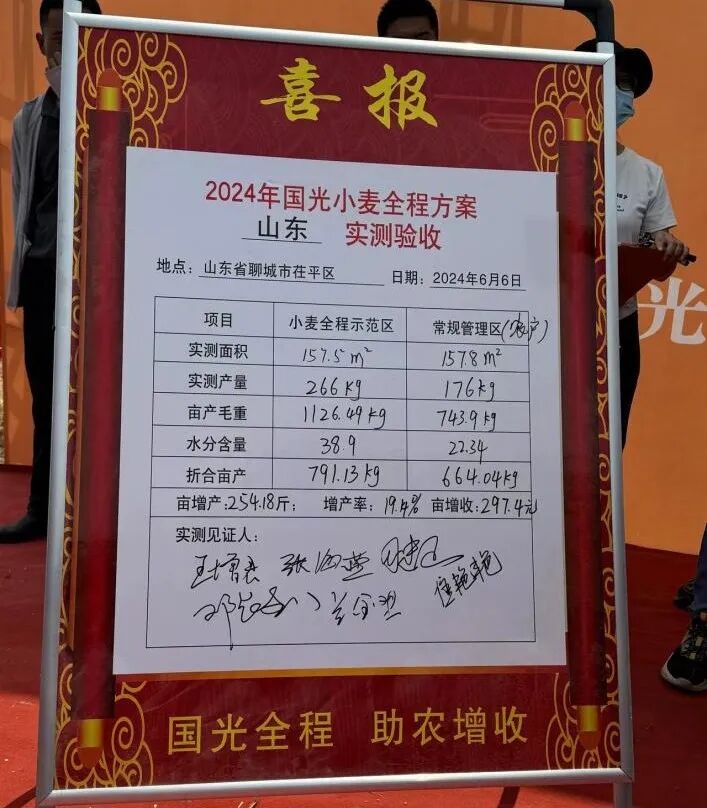 喜报
2024年国光小麦全程方案
山东 实测验收
地点：山东省聊城市茌平区 日期：2024年6月6日
项目 小麦全程示范区 常规管理区(农户)
实测面积 157.5m² 157.8m²
实测产量 266kg 176kg
亩产毛重 1126.49kg 743.9kg
水分含量 38.9 22.34
折合亩产 791.13kg 664.04kg
亩增产:254.18斤； 增产率：19.4% 亩增收:297.4元
实测见证人：
光
国光全程 助农增收